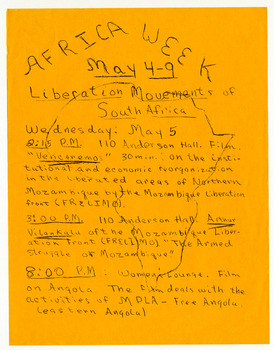 AFRICA WEEK
May 4-9
Liberation Movements of
South Africa
Wednesday: May 5
2:15 P.M. 110 Anderson Hall. Film.
"Venceremos" 30 min.: on the insti-
tutional and economic reorganization
in the liberated areas of Northern
Mozambique by the Mozambique Liberation
front (FRELIMO).
3:00 P.M. 110 Anderson Hall.
Vilankulu of the Mozambique Liber-
ation front (FRELIMO) "The Armed
Struggle of Mozambique"
8:00 P.M: Women Lounge. Film
on Angola The film deals with the
activities of MPLA - Free Angola
(eastern Angola)